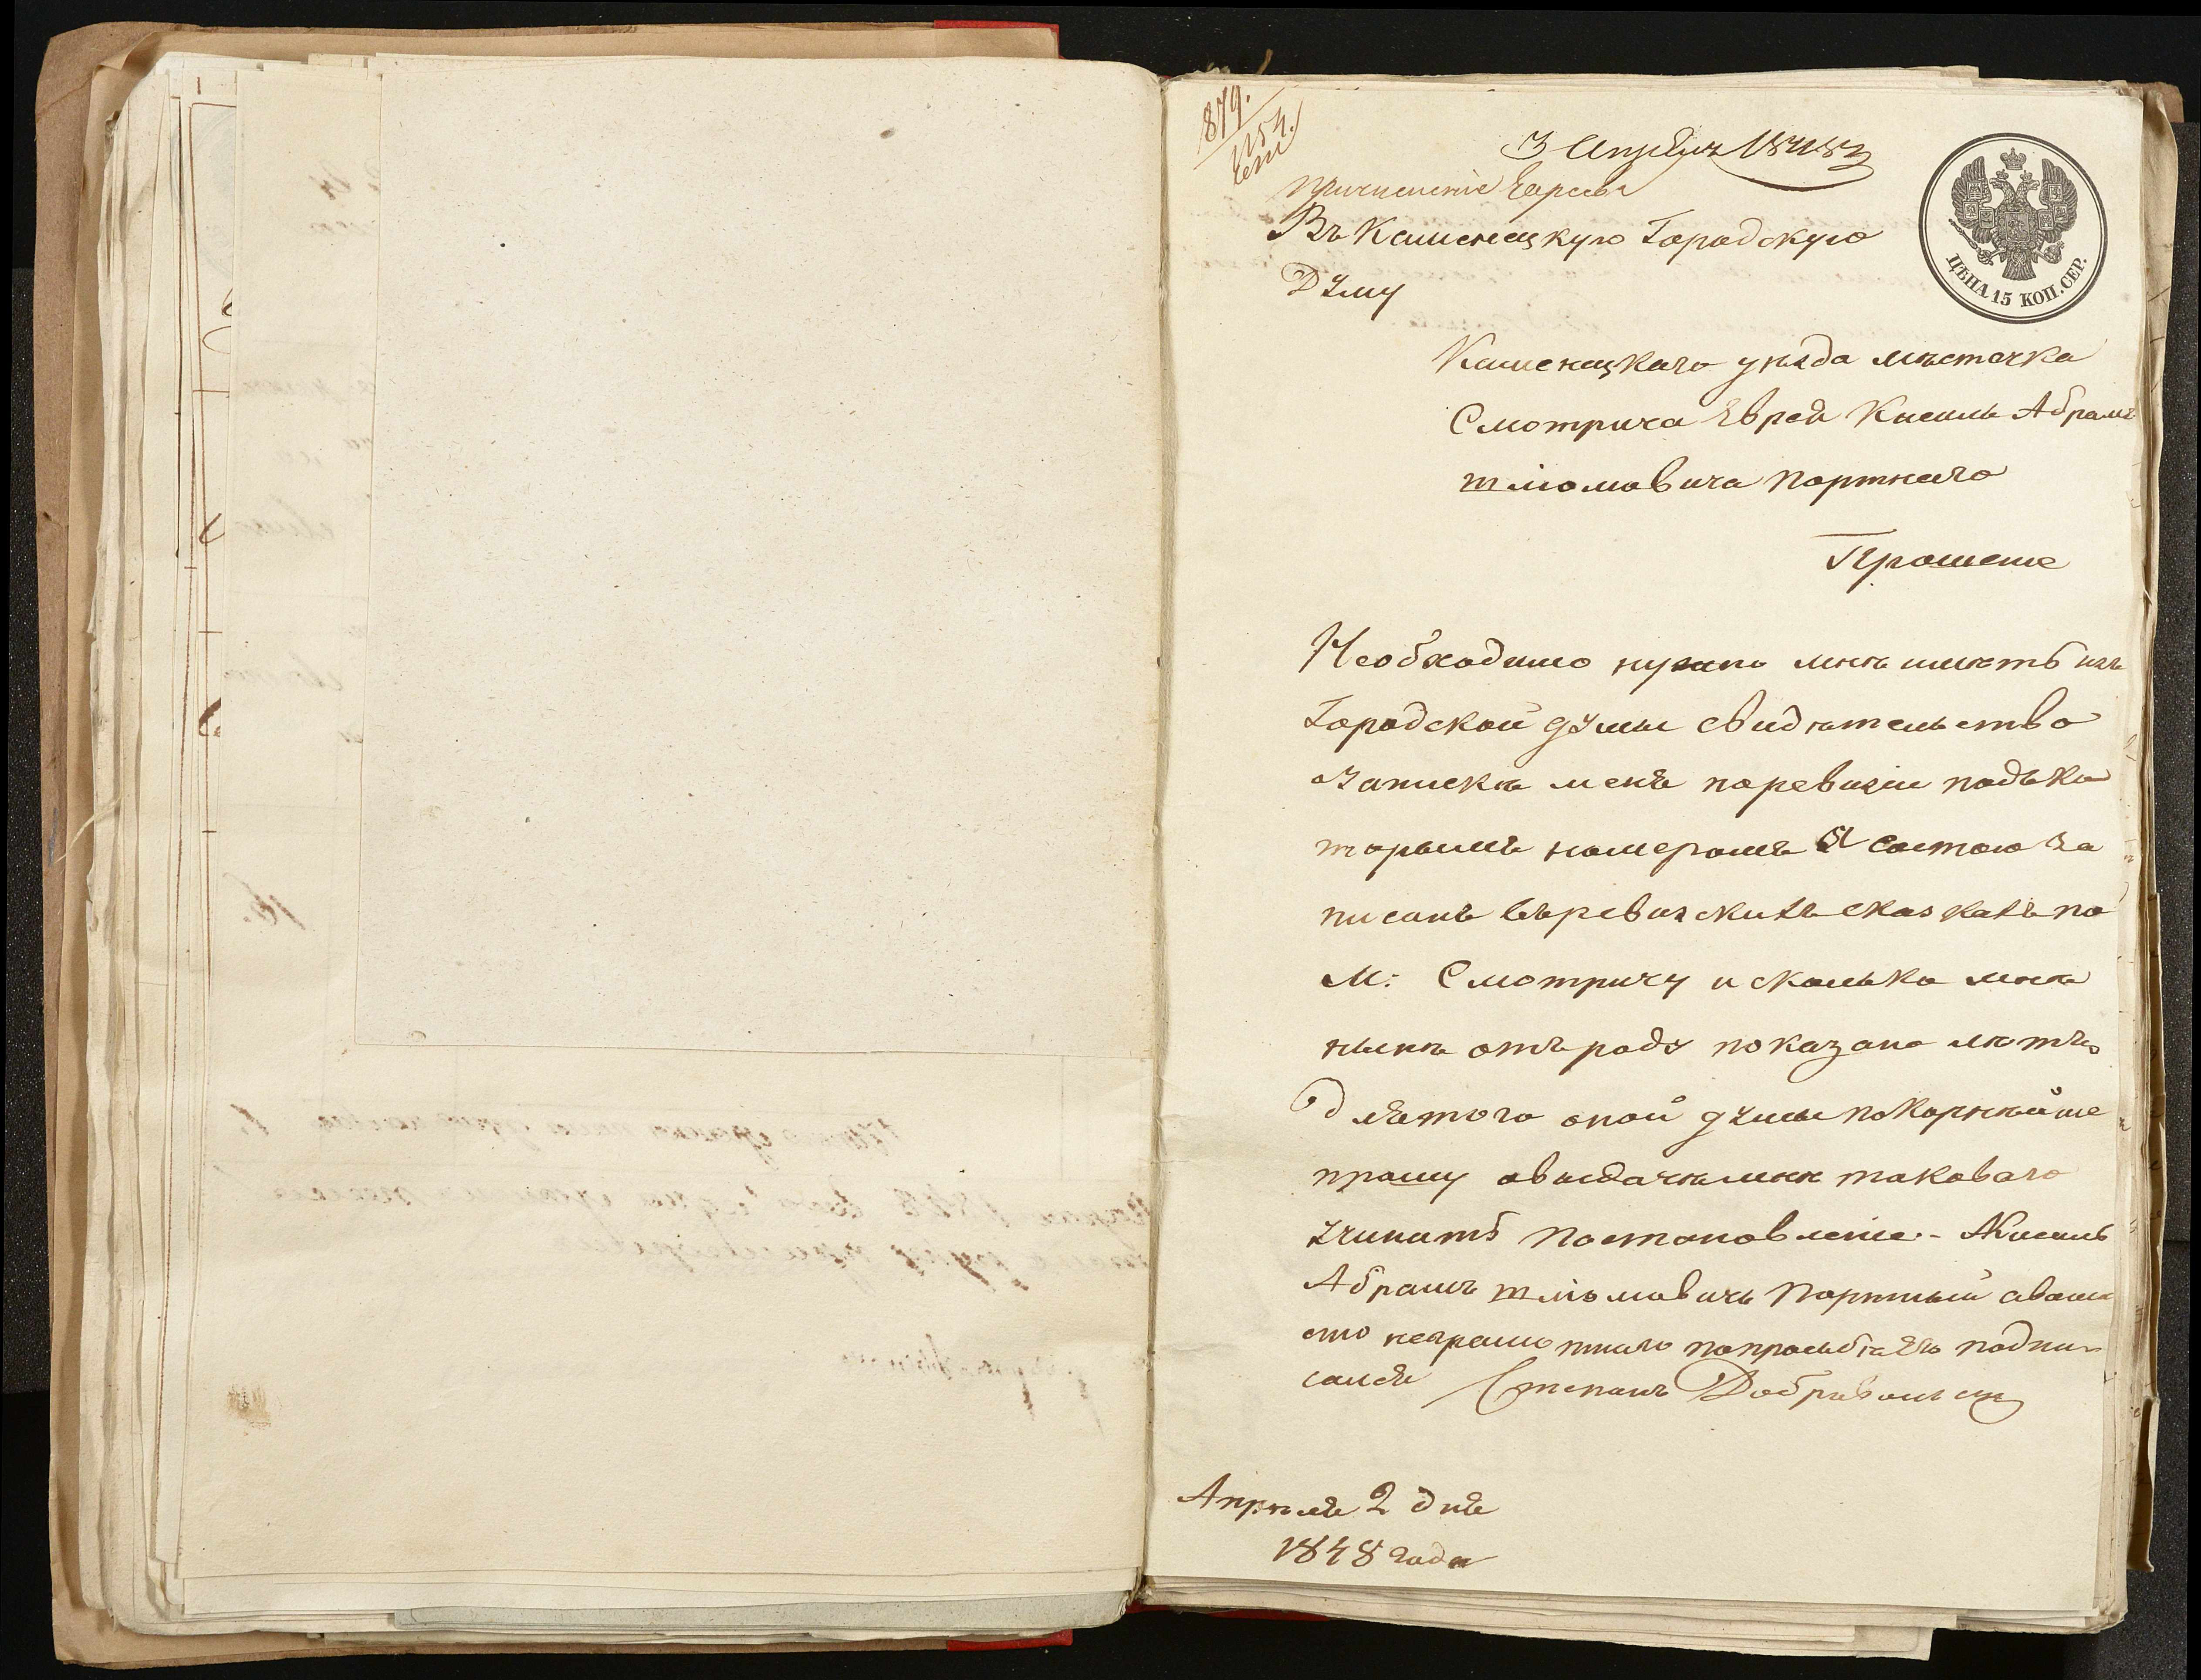 879.
3 Апреля 1848
Въ Каменецкую Городскую
Думу
ЦѢНА 15 КОП. СЕР.
Каменецкаго уѣзда мѣстечка
Смотрича Еврея Кисиль Абрамъ
шліомовича Портнаго
Прошение
Необходимо нужно мнѣ имѣть изъ
Городской думы свидѣтельство
озапискѣ менѣ поревизіи подъко
торымъ номеромъ я состою за
писанъ въревизскихъ сказкахъ по
М: Смотричу исколько мнѣ
нынѣ отъроду показано лѣтъ
Для того оной думы покорнѣйше
прошу овыдачѣ мнѣ таковаго
учинить постановленіе - Кисиль
Абрамъ шліомовичъ Портный авмѣ
сто неграмотнаго попросьбѣ его подпи
салсѣ Степанъ
Апрѣлѣ 2 днѣ
1848 года